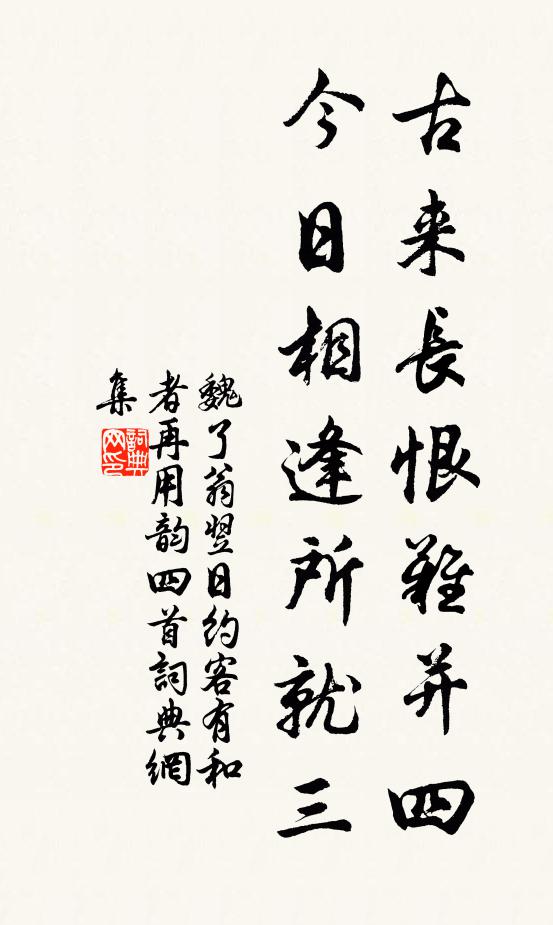 古来長恨難并四
今日相逢所就三
魏了翁翌日約客有和
者再用韵四首詞典網
集
詞典网印